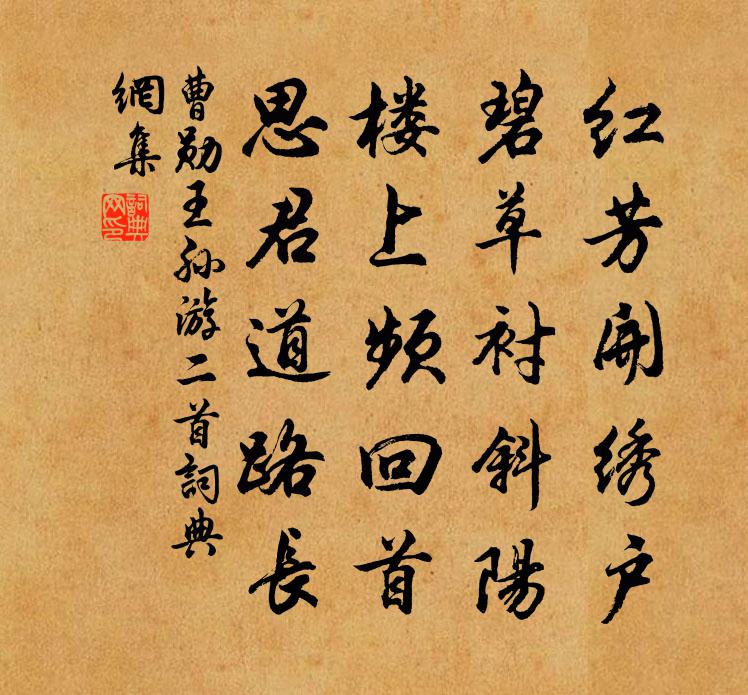 红芳開绣户
碧草衬斜陽
楼上頻回首
思君道路長
曹勋王孙游二首詞典
網集
詞典
网印